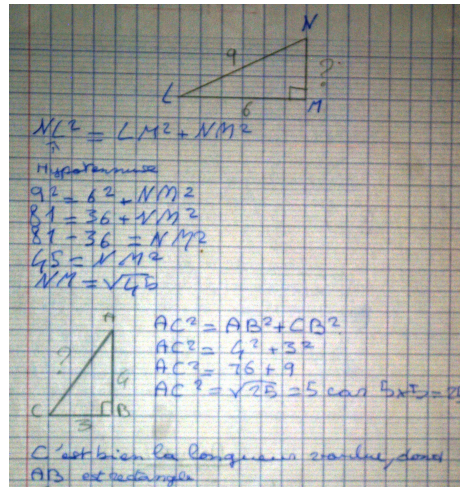 N
9
?
L
6
M
NL² = LM² + NM²
Hypoténuse
9² = 6² + NM²
81 = 36 + NM²
81 - 36 = NM²
45 = NM²
NM = √45
A
?
4
C
B
3
AC² = AB² + CB²
AC² = 4² + 3²
AC² = 16 + 9
AC² = √25 = 5 car 5x5=25
C'est bien la longueur donc
AB est rectangle